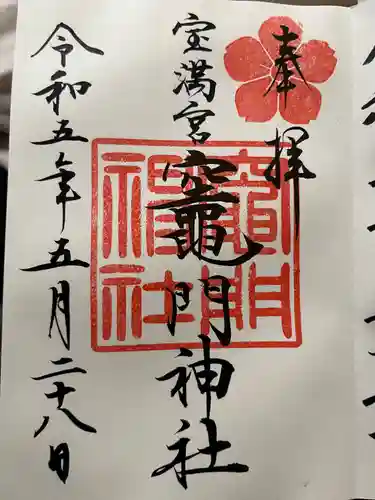 奉拝
宝満宮
竈門神社
竈門神社
令和五年五月二十八日